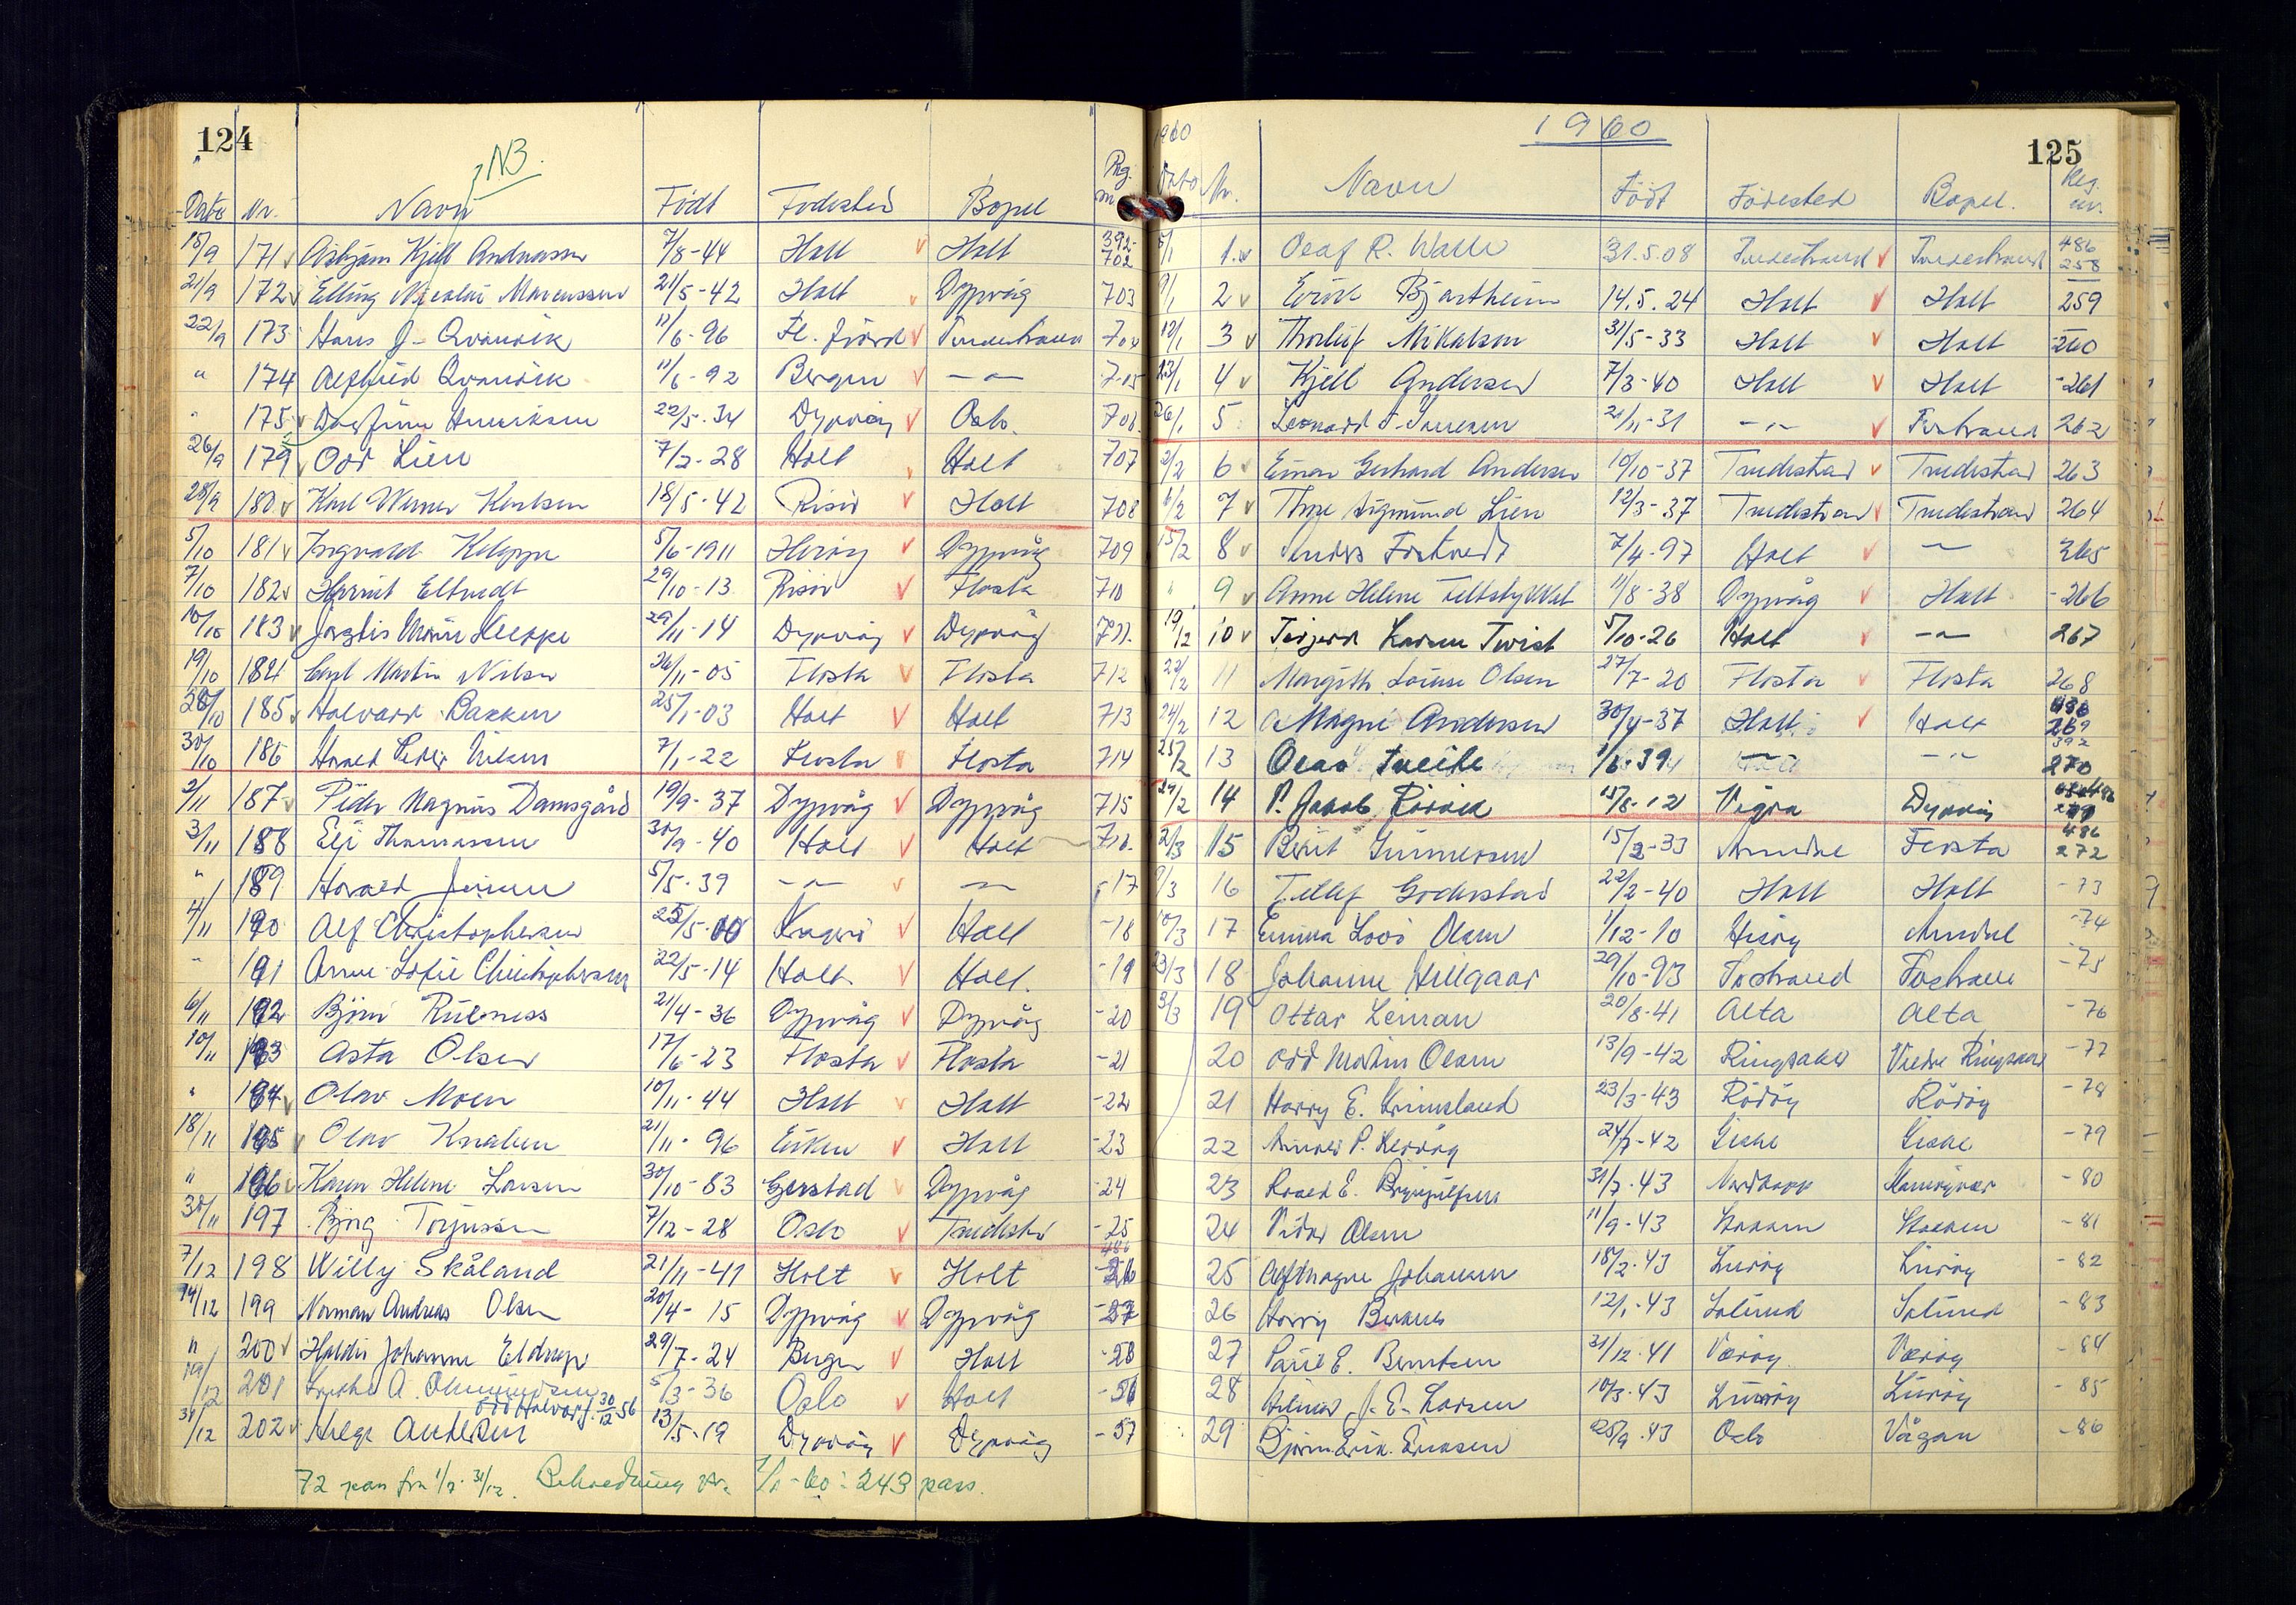 124
NB.
Dato Nr. Navn Födt Fødested Bopel Reg. nr.
15/9 171 Asbjørn Kjell Andreassen 7/8-44 Holt Holt 392- 702
21/9 172 Elling Nicolai Marcussen 21/5-42 Holt Dypvåg 703
22/9 173 Hans J. Qvanvik 11/6-96 Fl. Tvedestrand
" 174 Alfhild Qvanvik 11/6-92 Bergen -"-
" 175 Dagfinn Henriksen 22/5-34 Dypvåg Oslo
26/9 179 Odd Lien 7/2-28 Holt Holt 707
28/9 180 Karl Werner Karlsen 18/5-42 Risør Holt 708
5/10 181 Ingvald Kleppe 5/6-1911 Hisøy Dypvåg 709
7/10 182 Eltvedt 29/10-13 Risör Flosta 710
10/10 183 Kleppe 29/11-14 Dypvåg Dypvåg 711
19/10 184 Carl Martin Nilsen 26/11-05 Flosta Flosta 712
28/10 185 Halvard Bakken 25/1-03 Holt Holt 713
30/10 186 Harald Peder Nilsen 7/1-22 Flosta Flosta 714
2/11 187 Peder Magnus Damsgård 19/9-37 Dypvåg Dypvåg 715
3/11 188 Thomassen 30/9-40 Holt Holt 716
" 189 Harald Jensen 5/5-39 -"- -"- -17
4/11 190 Alf Christophersen 25/5-00 Kragerö Holt -18
" 191 Anne Sofie Christophersen 22/5-14 Holt Holt -19
6/11 192 Björn 21/4-36 Dypvåg Dypvåg -20
10/11 193 Asta Olsen 17/6-23 Flosta Flosta -21
" 194 Olav Moen 10/11-44 Holt Holt -22
18/11 195 Olav Knaben 21/11-96 Eiken Holt -23
" 196 Karen Helene Larsen 30/10-83 Gjerstad Dypvåg -24
30/11 197 Bjørg Torjussen 7/12-28 Oslo Tvedestr -25
7/12 198 Willy Skåland 21/11-41 Holt Holt 486 -26
14/12 199 Norman Andreas Olsen 20/4-15 Dypvåg Dypvåg -27
" 200 Haldis Johanne Eldrup 29/7-24 Bergen Holt -28
19/12 201 A. 5/3-36 Oslo Holt -56
Odd Halvor f. 30/12-56
31/12 202 Helge Andersen 13/5-19 Dypvåg Dypvåg -57
72 pass fra 1/7-31/12. 1/1-60: 243 pass.
1960
125
1960
Dato Nr. Navn Födt Födested Bopel. Reg. nr.
5/1 1. Olaf R. Walle 31.5.08 Tvedestrand Tvedestrand 486 258
9/1 2 Eirik Bjortheim 14.5.24 Holt Holt 259
12/1 3 Thorleif Mikalsen 31/5-33 Holt Holt 260
23/1 4 Kjell Andersen 7/3-40 Holt Holt -261
26/1 5 Leonard 21/11-31 -"- 262
2/2 6 Einar Gerhard Andersen 10/10-37 Tvedestrand Tvedestrand 263
6/2 7 Thore Sigmund Lien 12/3-37 Tvedestrand Tvedestrand 264
15/2 8 Anders Fostvedt 7/4-97 Holt -"- 265
" 9 Anne Helene 11/8-38 Dypvåg Holt -266
19/12 10 Torjerd Karen Tvist 5/10-26 Holt -"- 267
22/2 11 Margith Louise Olsen 27/7-20 Flosta Flosta 268
24/2 12 Magne Andersen 30/4-37 Holt Holt 486 269
25/2 13 Olav Tveite 1/6-39 -"- 392 270
29/2 14 P. Jakob Rörvik 15/8-12 Vigra Dypvåg
2/3 15 Berit Gunnersen 15/2-33 Arendal Flosta 486 272
9/3 16 Tellef Goderstad 22/2-40 Holt Holt -73
10/3 17 Emma Olsen 1/12-10 Hisøy Arendal -74
23/3 18 Johanne Hillgaar 29/10-93 -75
3/3 19 Ottar Leiman 20/8-41 Alta Alta -76
20 Odd Martin Olsen 13/9-42 Ringsaker Vestre Ringsaker -77
21 Harry E. Grimsland 23/3-43 Rödöy Rödöy -78
22 24/7-42 Giske Giske -79
23 Roald E. Brynjulfsen 31/7-43 Nordkapp Kamøyvær -80
24 Vidar Olsen 11/9-43 -81
25 Alf Magne Johansen 18/2-43 Luröy Luröy -82
26 Harry 12/1-43 Solund Solund -83
27 E. Berntsen 31/12-41 Væröy Væröy -84
28 J. E. Larsen 10/3-43 Luröy Luröy -85
29 Björn Erik Eriksen 25/9-43 Oslo Vågan -86